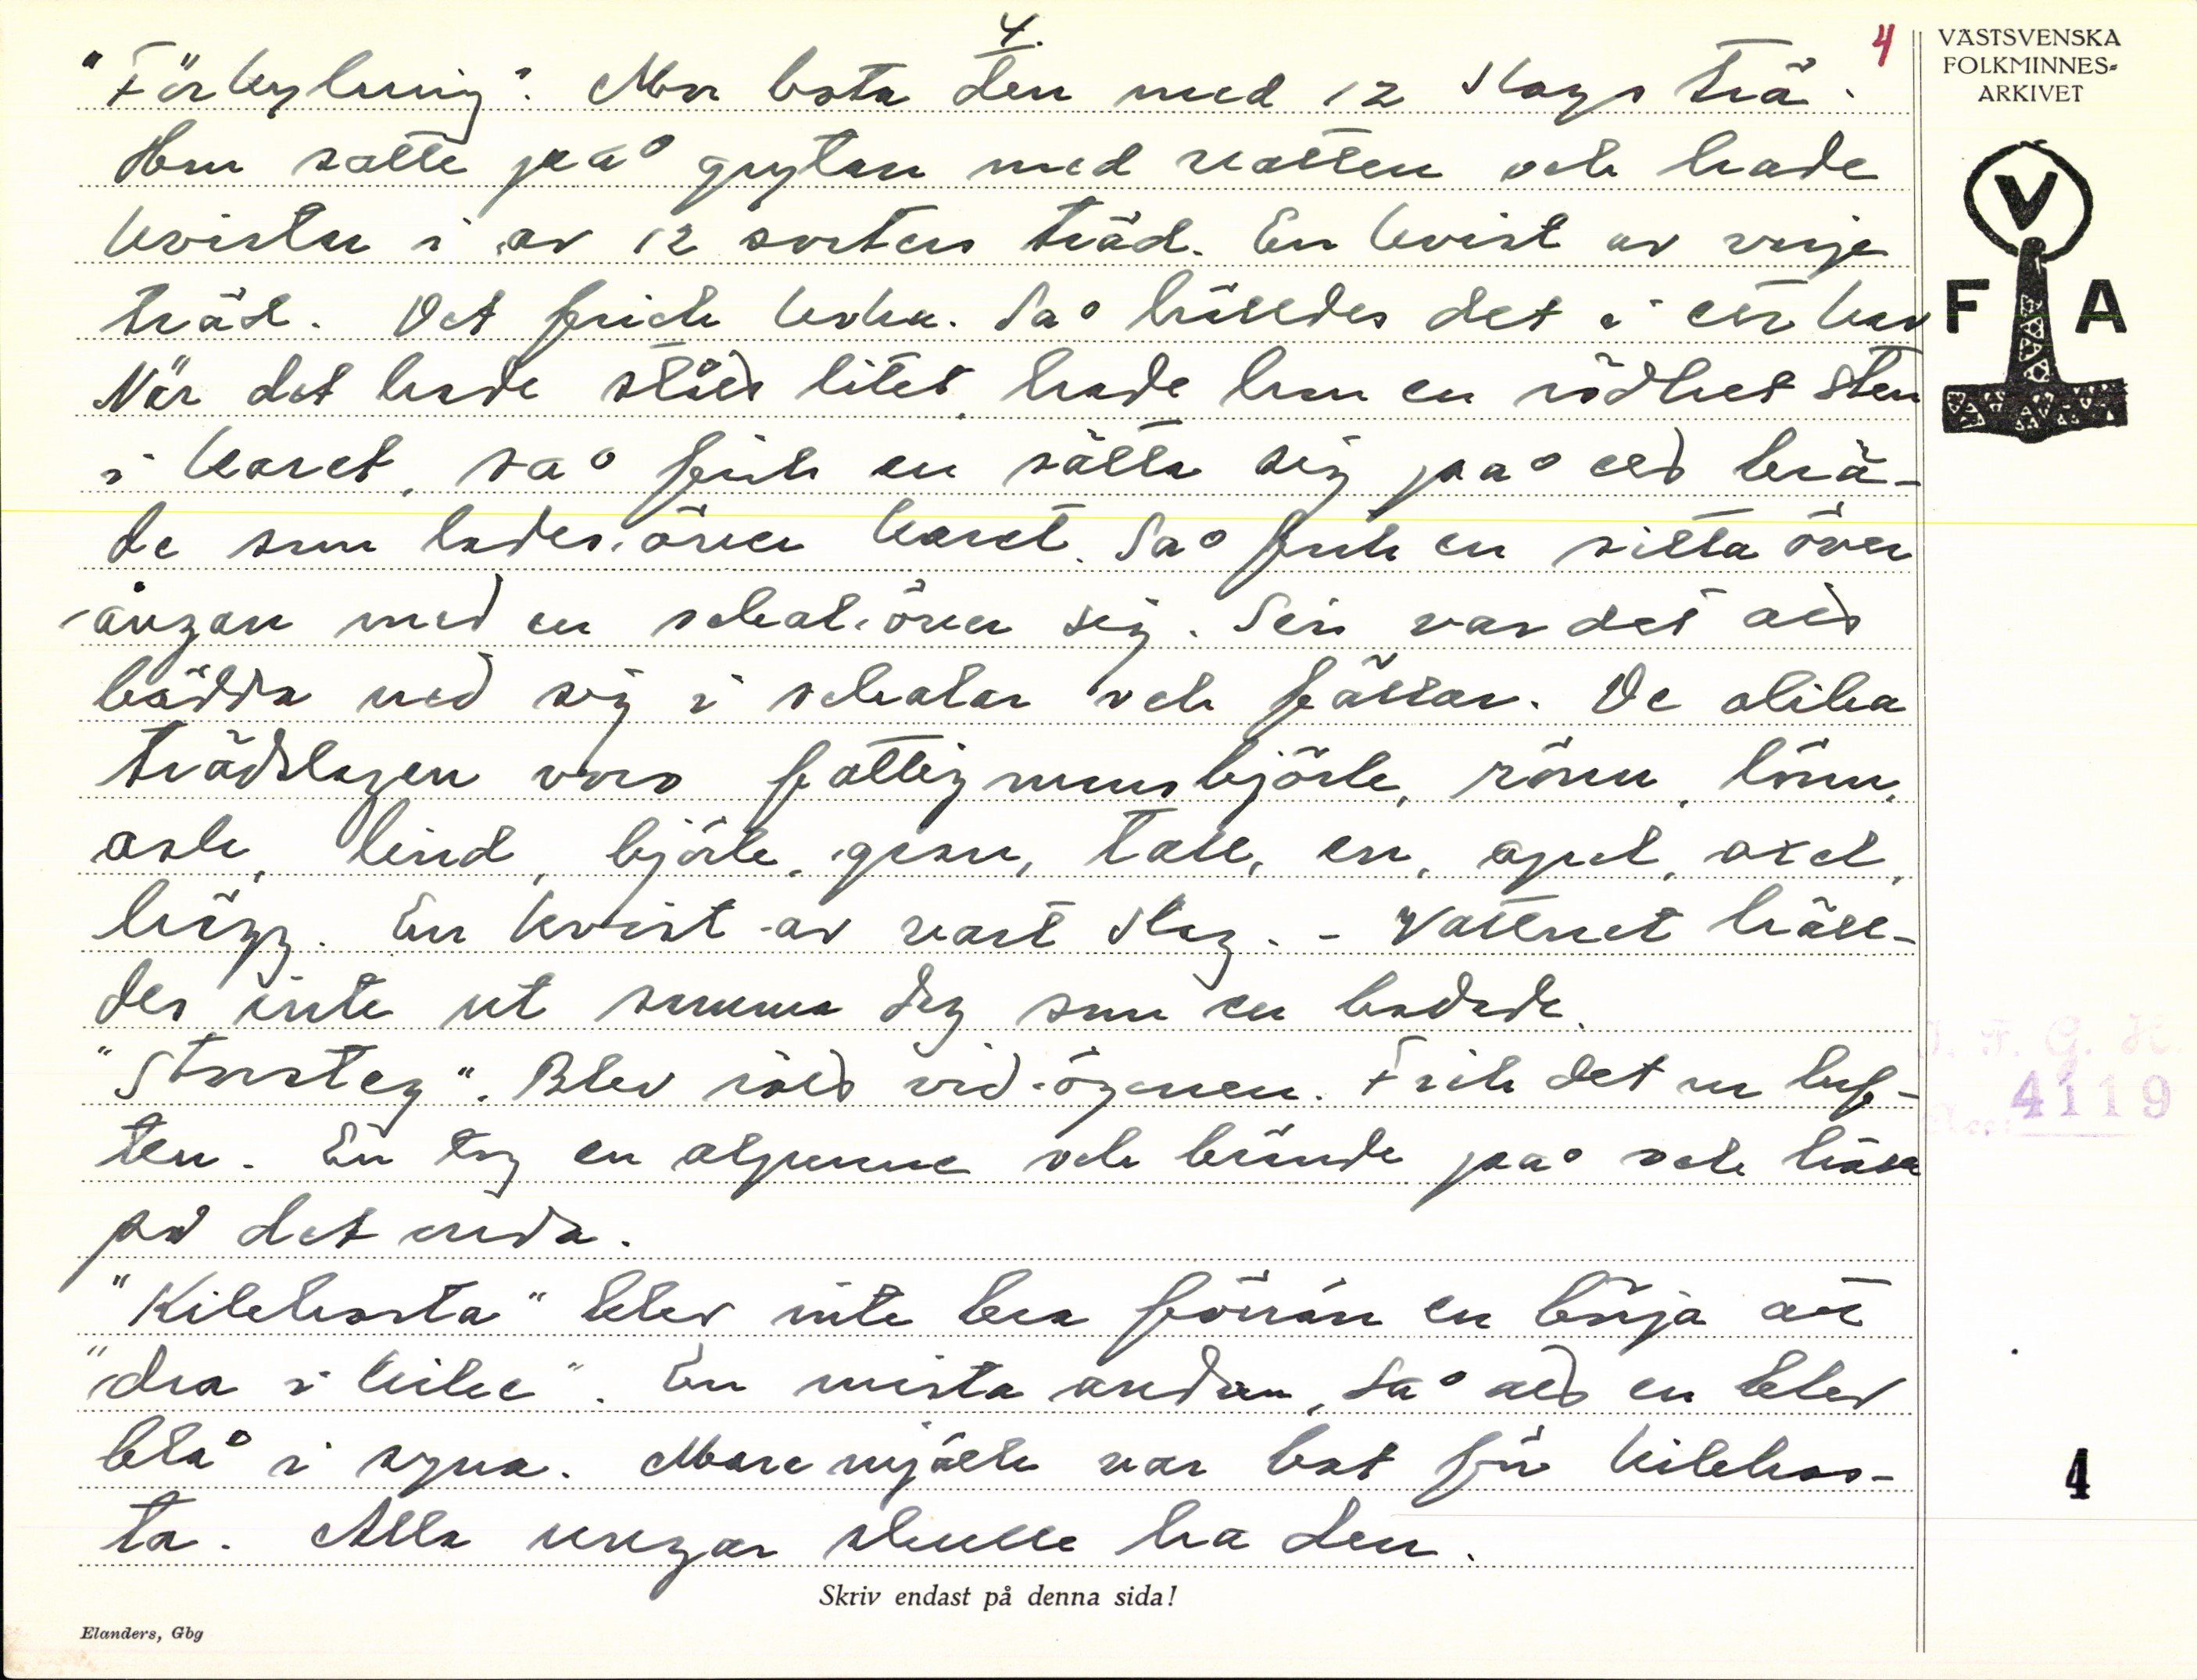 4.
4
VÄSTSVENSKA
FOLKMINNES-
ARKIVET
V
F A
"Förkylning". Mor bota den med 12 slags trä.
Hon satte på grytan med vatten och hade
kvistar i av 12 sorters träd. En kvist av varje
träd. Det fick koka. Så hälldes det i ett kar
När det hade ståed litet, hade hon en rödhet sten
i karet, så fick en sätta sig på ed brä-
de som lades över karet. Så fick en sitta över
ångan med en schal över sig. Sen var det aed
bädda ned sig i schalar och fällar. De olika
trädslagen voro fattigmansbjörk, rönn, lönn,
ask, lind, björk, gran, tall, en, apel, oxel,
hägg. En kvist av vart slag. - Vattnet häll-
des inte ut samma dag som en badade.
"Storsteg". Blev röed vid ögonen. Fick det ur luf-
ten. En tog en alpenne och brände på och höll
på det onda.
"Kilehosta" blev inte bra förrän en börja att
"dra i kile". En mista andan, så aed en blev
blå i syna. Maremjölk var bot för kilehos-
ta. Alla ungar skulle ha den.
4119
4
Skriv endast på denna sida!
Elanders, Gbg